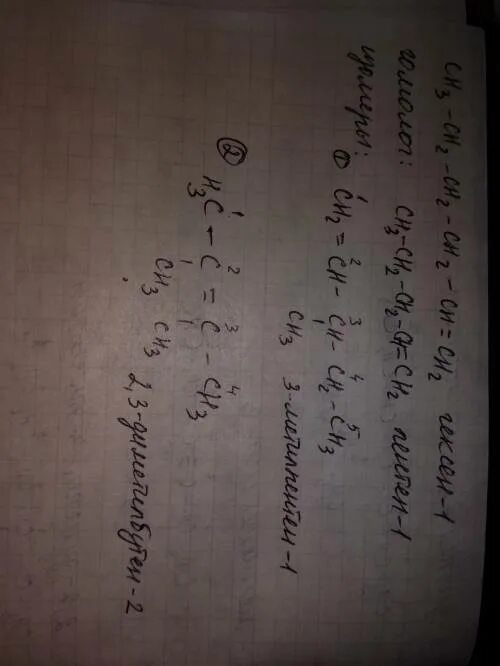 CH₃-CH₂-CH₂-CH₂-CH=CH₂ гексен-1
гомолог: CH₃-CH₂-CH₂-CH=CH₂ пентен-1
1 2 3 4 5
изомеры: ① CH₂=CH-CH-CH₂-CH₃
CH₃ 3-метилпентен-1
1 2 3 4
② H₃C-C=C-CH₃
CH₃ CH₃ 2,3-диметилбутен-2